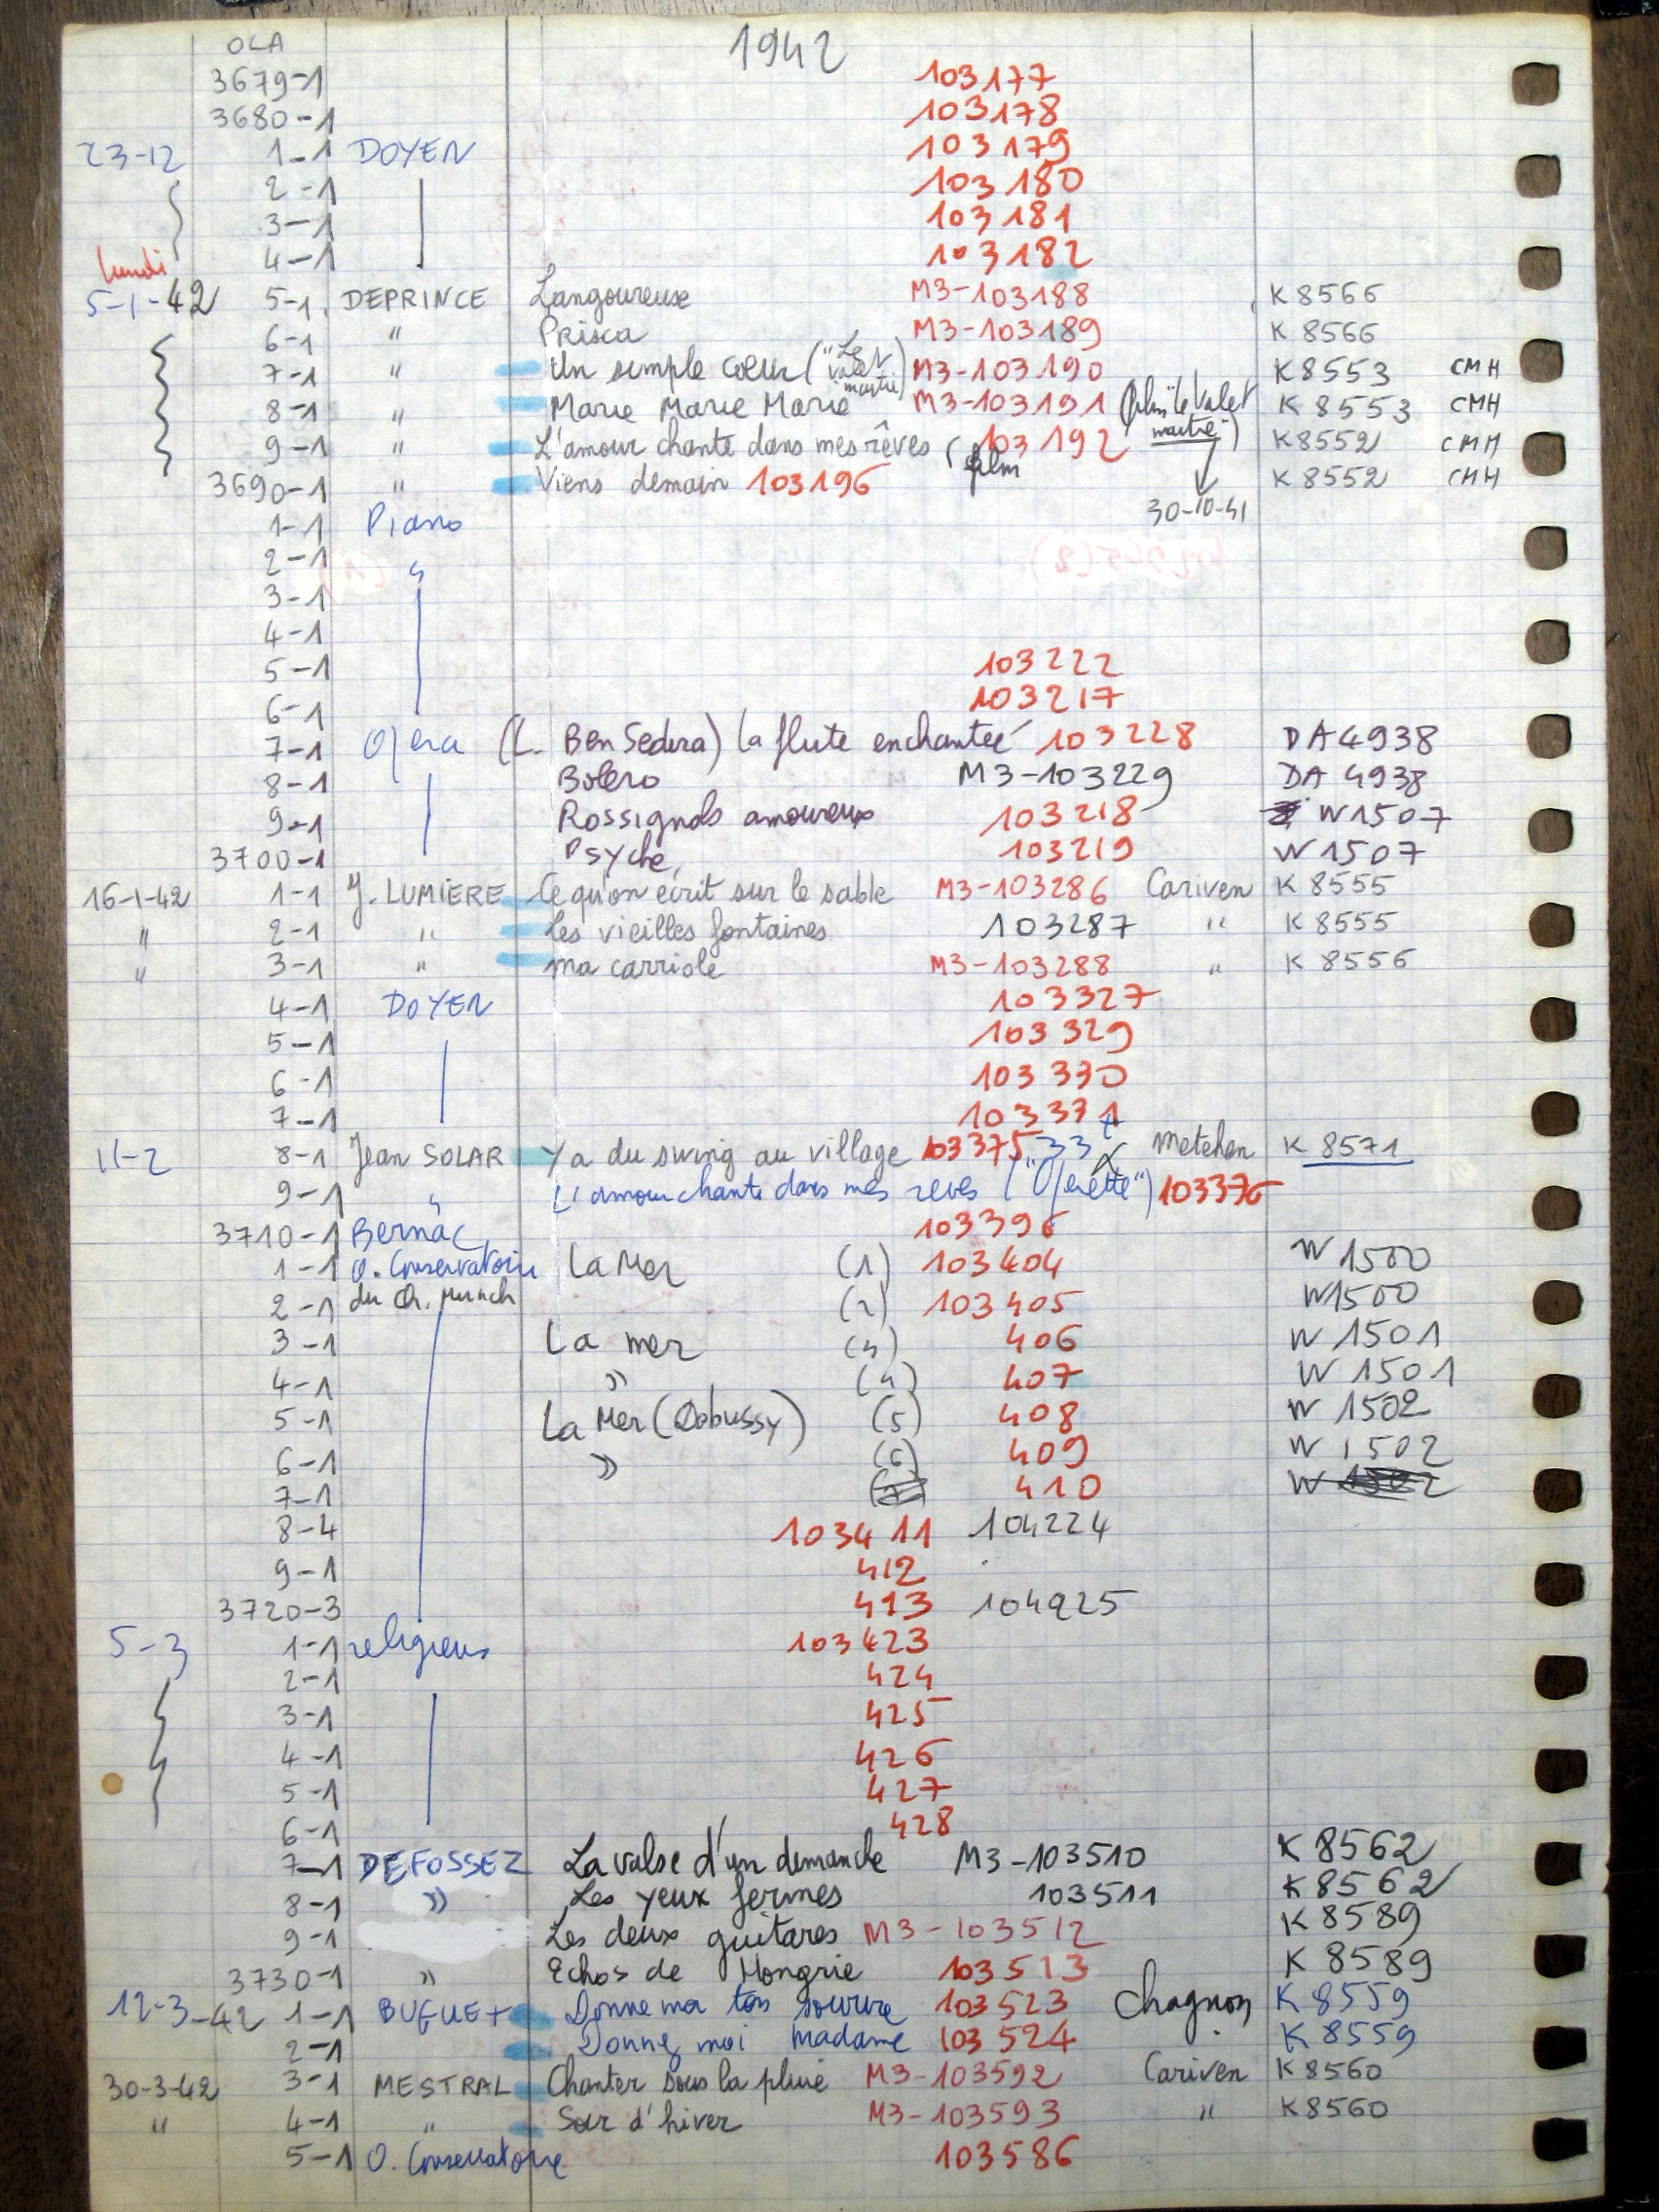 OLA 1942
3679-1 103177
3680-1 103178
23-12 1-1 DOYEN 103179
2-1 103180
3-1 103181
4-1 103182
lundi
5-1-42 5-1 DEPRINCE Langoureuse M3-103188 K8566
6-1 " Prisca M3-103189 K 8566
7-1 " Un simple coeur ("Le valet maitre) M3-103190 K8553 CMH
8-1 " Marie Marie Marie M3-103191 (film "le Valet maitre") K 8553 CMH
9-1 " L'amour chante dans mes rêves (film 103192 K8552 CMH
3690-1 " Viens demain 103196 K 8552 CMH
30-10-41
1-1 Piano
2-1 "
3-1
4-1
5-1 103222
6-1 103217
7-1 Opera (L. Ben Sedira) la flute enchantée 103228 DA4938
8-1 Bolero M3-103229 DA 4938
9-1 Rossignols amoureux 103218 W1507
3700-1 Psyché 103219 W1507
16-1-42 1-1 J. LUMIERE Ce qu'on écrit sur le sable M3-103286 Cariven K 8555
" 2-1 " Les vieilles fontaines 103287 " K 8555
" 3-1 " ma carriole M3-103288 " K 8556
4-1 DOYEN 103327
5-1 103329
6-1 103330
7-1 103371
11-2 8-1 Jean SOLAR Y a du swing au village 103375 33 Metehen K 8571
9-1 " L'amour chante dans mes reves ("Operette") 103376
3710-1 Bernac 103396
1-1 O. Conservatoire La Mer (1) 103404 W1500
2-1 du Ch. Munch (2) 103405 W1500
3-1 La mer (3) 406 W 1501
4-1 » (4) 407 W 1501
5-1 La Mer (Debussy) (5) 408 W 1502
6-1 » (6) 409 W 1502
7-1 410 W
8-4 103411 104224
9-1 412
3720-3 413 104225
5-3 1-1 religieux 103423
2-1 424
3-1 425
4-1 426
5-1 427
6-1 428
7-1 DEFOSSEZ La valse d'un dimanche M3-103510 K 8562
8-1 » Les yeux fermes 103511 K8562
9-1 Les deux guitares M3-103512 K 8589
3730-1 » Echos de Hongrie 103513 K 8589
12-3-42 1-1 BUGUET Donne moi ton sourire 103523 Chagnon K 8559
2-1 Donnez moi Madame 103524 K 8559
30-3-42 3-1 MESTRAL Chanter sous la pluie M3-103592 Cariven K8560
" 4-1 " Soir d'hiver M3-103593 " K8560
5-1 O. Conservatoire 103586